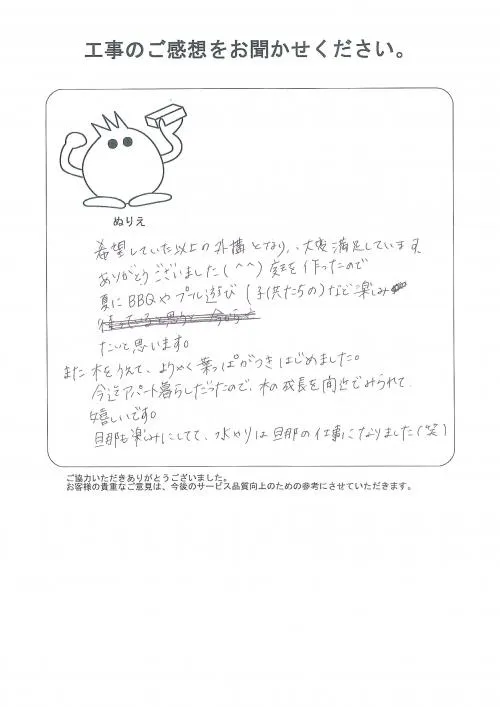 工事のご感想をお聞かせください。
ぬりえ
希望していた以上の外構となり、大変満足しています。
ありがとうございました(^^)庭を作ったので
夏にBBQやプール遊び(子供たちの)などで楽しみ
たいと思います。
また木をうえて、ようやく葉っぱがつきはじめました。
今迄アパート暮らしだったので、木の成長を間近でみられて
嬉しいです。
旦那も楽しみにしてて、水やりは旦那の仕事になりました(笑)
ご協力いただきありがとうございました。
お客様の貴重なご意見は、今後のサービス品質向上のための参考にさせていただきます。